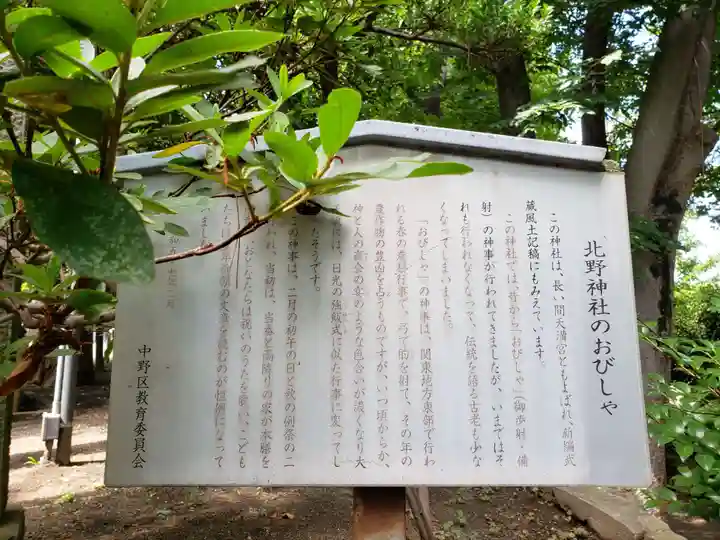 北野神社のおびしゃ
この神社は、長い間天満宮ともよばれ、新編武
蔵風土記稿にもみえています。
この神社では、昔から「おびしゃ」(御歩射・備
射)の神事が行われてきましたが、いまではそ
れも行われなくなって、伝統を語る古老も少な
くなってしまいました。
「おびしゃ」の神事は、関東地方東部で行わ
れる春の農耕行事で、弓で的を射て、その年の
農作物の豊凶を占うものですが、いつ頃からか、
神と人の商会の宴のような色合いが濃くなり大
は、日光の強飯式に似た行事に変ってし
たそうです。
の神事は、二月の初午の日と秋の例祭の二
れ、当初は、当番と両隣りの家が本膳を
、おとなたちは祝いのうたを歌い、こども
たちは
するのが恒例になって
いまし
中野区教育委員会